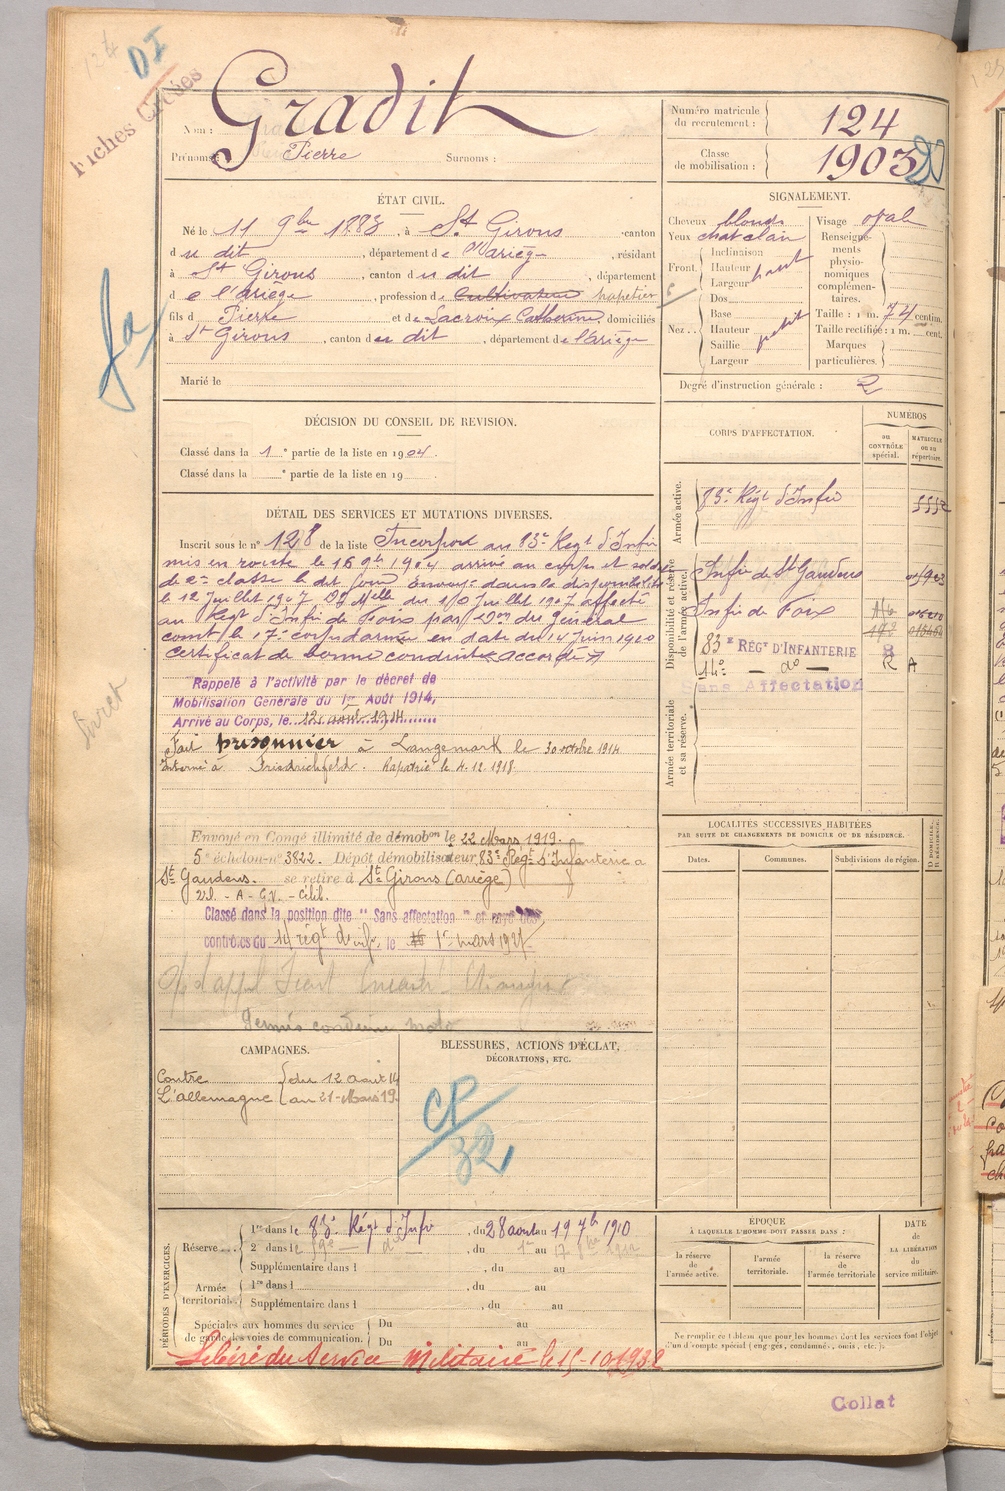 124
DI
Fiches Créées
Gradit
Nom :
Prénoms : Pierre Surnoms :
Numéro matricule du recrutement : 124
Classe de mobilisation : 1903
ÉTAT CIVIL.
Né le 11 9bre 1883, à St Girons, canton
du dit, département de l'Ariège, résidant
à St Girons, canton du dit, département
de l'Ariège, profession de Cultivateur papetier
fils d Pierre et de Lacroix Catherine, domiciliés
à St Girons, canton du dit, département de l'ariège
Marié le
SIGNALEMENT.
Cheveux blonds
Yeux chatclain
Front. Inclinaison
Hauteur haut
Largeur
Nez.. Dos
Base
Hauteur petit
Saillie
Largeur
Visage oval
Renseignements physionomiques complémentaires.
Taille : 1 m. 74 centim.
Taille rectifiée : 1 m. cent.
Marques particulières.
Degré d'instruction générale : 2
DÉCISION DU CONSEIL DE REVISION.
Classé dans la 1e partie de la liste en 1904.
Classé dans la e partie de la liste en 19
CORPS D'AFFECTATION.
NUMÉROS
au CONTRÔLE spécial.
MATRICULE ou au répertoire.
Armée active.
83e Régt d'Infie 5552
Disponibilité et réserve de l'armée active.
Infie de St Gaudens
Infie de Foix
83e RÉGt D'INFANTERIE
14e do R A
Sans Affectation
Armée territoriale et sa réserve.
DÉTAIL DES SERVICES ET MUTATIONS DIVERSES.
Inscrit sous le n° 128 de la liste Incorporé au 83e Regt d'Infie
mis en route le 16 9bre 1904 arrivé au corps et soldat
de 2e classe le dit jour Envoyé dans la disponibilité
le 12 Juillet 1907 Don Mlle du 10 Juillet 1907 affecté
au Regt d'Infie de Foix par Don du général
comt le 17e corps d'armée en date du 14 Juin 1910
certificat de bonne conduite accordé
Rappelé à l'activité par le décret de
Mobilisation Générale du 1er Août 1914,
Arrivé au Corps, le 12 août 1914
Fait prisonnier à Langemark le 30 octobre 1914
interné à Friedrichfeld. Rapatrié le 4.12.1918.
Livret
Envoyé en Congé illimité de démobon le 22 Mars 1919.
5e échelon n° 3822. Dépôt démobilisateur 83e Regt d'Infanterie a
St Gaudens. se retire à St Girons (Ariège)
Classé dans la position dite " Sans affectation " et rayé des
contrôles du 14 régt d'infie, le 1er mars 1927
Permis conduire moto
LOCALITÉS SUCCESSIVES HABITÉES
PAR SUITE DE CHANGEMENTS DE DOMICILE OU DE RÉSIDENCE.
Dates. Communes. Subdivisions de région. D DOMICILE, R RÉSIDENCE.
CAMPAGNES.
Contre L'allemagne du 12 août 14 au 21 Mars 19.
BLESSURES, ACTIONS D'ÉCLAT,
DÉCORATIONS, ETC.
CP
32
PÉRIODES D'EXERCICES.
Réserve 1re dans le 83e Régt d'Infie, du 28 août au 19 7b 1910
2e dans le do, du 1er au 17 1912
Supplémentaire dans l , du au
Armée territoriale. 1re dans l , du au
Supplémentaire dans l , du au
Spéciales aux hommes du service de garde des voies de communication. Du au
Du au
ÉPOQUE
À LAQUELLE L'HOMME DOIT PASSER DANS :
la réserve de l'armée active.
l'armée territoriale.
la réserve de l'armée territoriale
DATE DE LA LIBÉRATION du service militaire.
Ne remplir ce tableau que pour les hommes dont les services font l'objet
d'un décompte spécial (engagés, condamnés, omis, etc.).
Libéré du Service Militaire le 15-10-1932
Collat